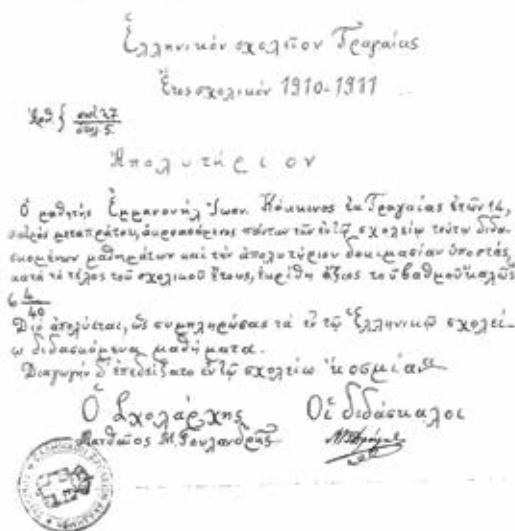 Ἑλληνικὸν σχολεῖον Τραγαίας
Ἔτος σχολικὸν 1910-1911
Ἀπολυτήριον
Ὁ μαθητὴς Ἐμμανουὴλ Ἰωαν. Κόκκινος ἐκ Τραγαίας ἐτῶν 14,
μεταπράτου, ἀκροασάμενος πάντων τῶν ἐν τῷ σχολείῳ τούτῳ διδα-
σκομένων μαθημάτων καὶ τὴν ἀπολυτήριον δοκιμασίαν ὑποστὰς
κατὰ τὸ τέλος τοῦ σχολικοῦ ἔτους, ἐκρίθη ἄξιος τοῦ βαθμοῦ καλῶς
6 4/40
Διὸ ἀπολύεται, ὡς συμπληρώσας τὰ ἐν τῷ Ἑλληνικῷ σχολεί-
ῳ διδασκόμενα μαθήματα.
Διαγωγὴν δ' ἐπεδείξατο ἐν τῷ σχολείῳ "κοσμίαν"
Ὁ Σχολάρχης Οἱ διδάσκαλοι
Ματθαῖος Μ. Γουλανδρῆς